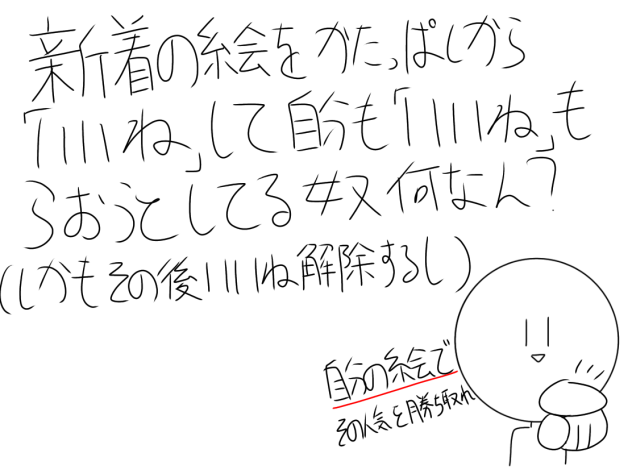 新着の絵をかたっぱしから
「いいね」して自分も「いいね」も
らおうとしてる奴何なん？
（しかもその後いいね解除するし）
自分の絵で
その人気を勝ち取れ